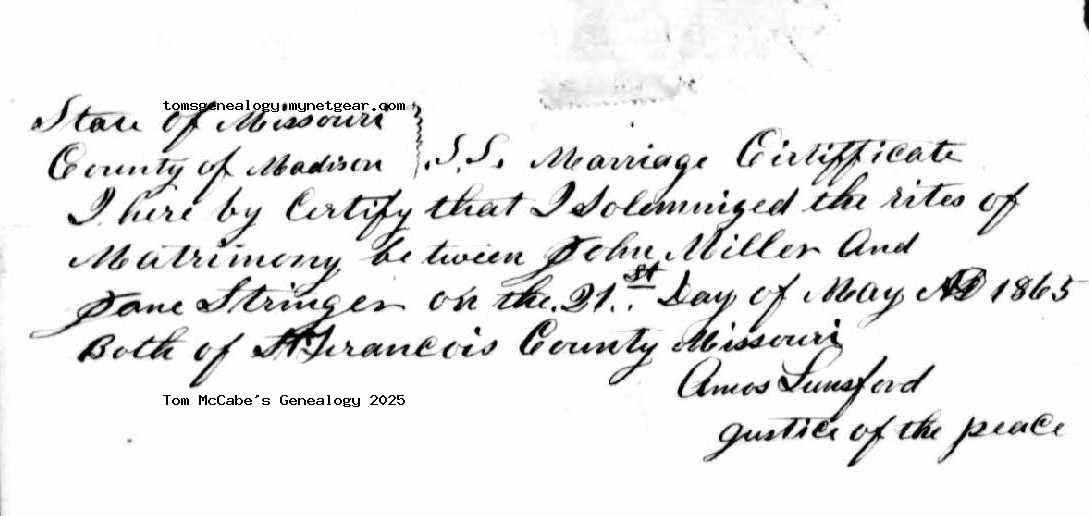 tomsgenealogy.mynetgear.com
State of Missouri
County of Madison } S.S. Marriage Cirtifficate
I here by Certify that I Solemnized the rites of
Matrimony be tween John Miller And
Jane Stringer on the 21st Day of May AD 1865
Both of St Francois County Missouri
Amos Lunsford
Tom McCabe's Genealogy 2025
justice of the peace